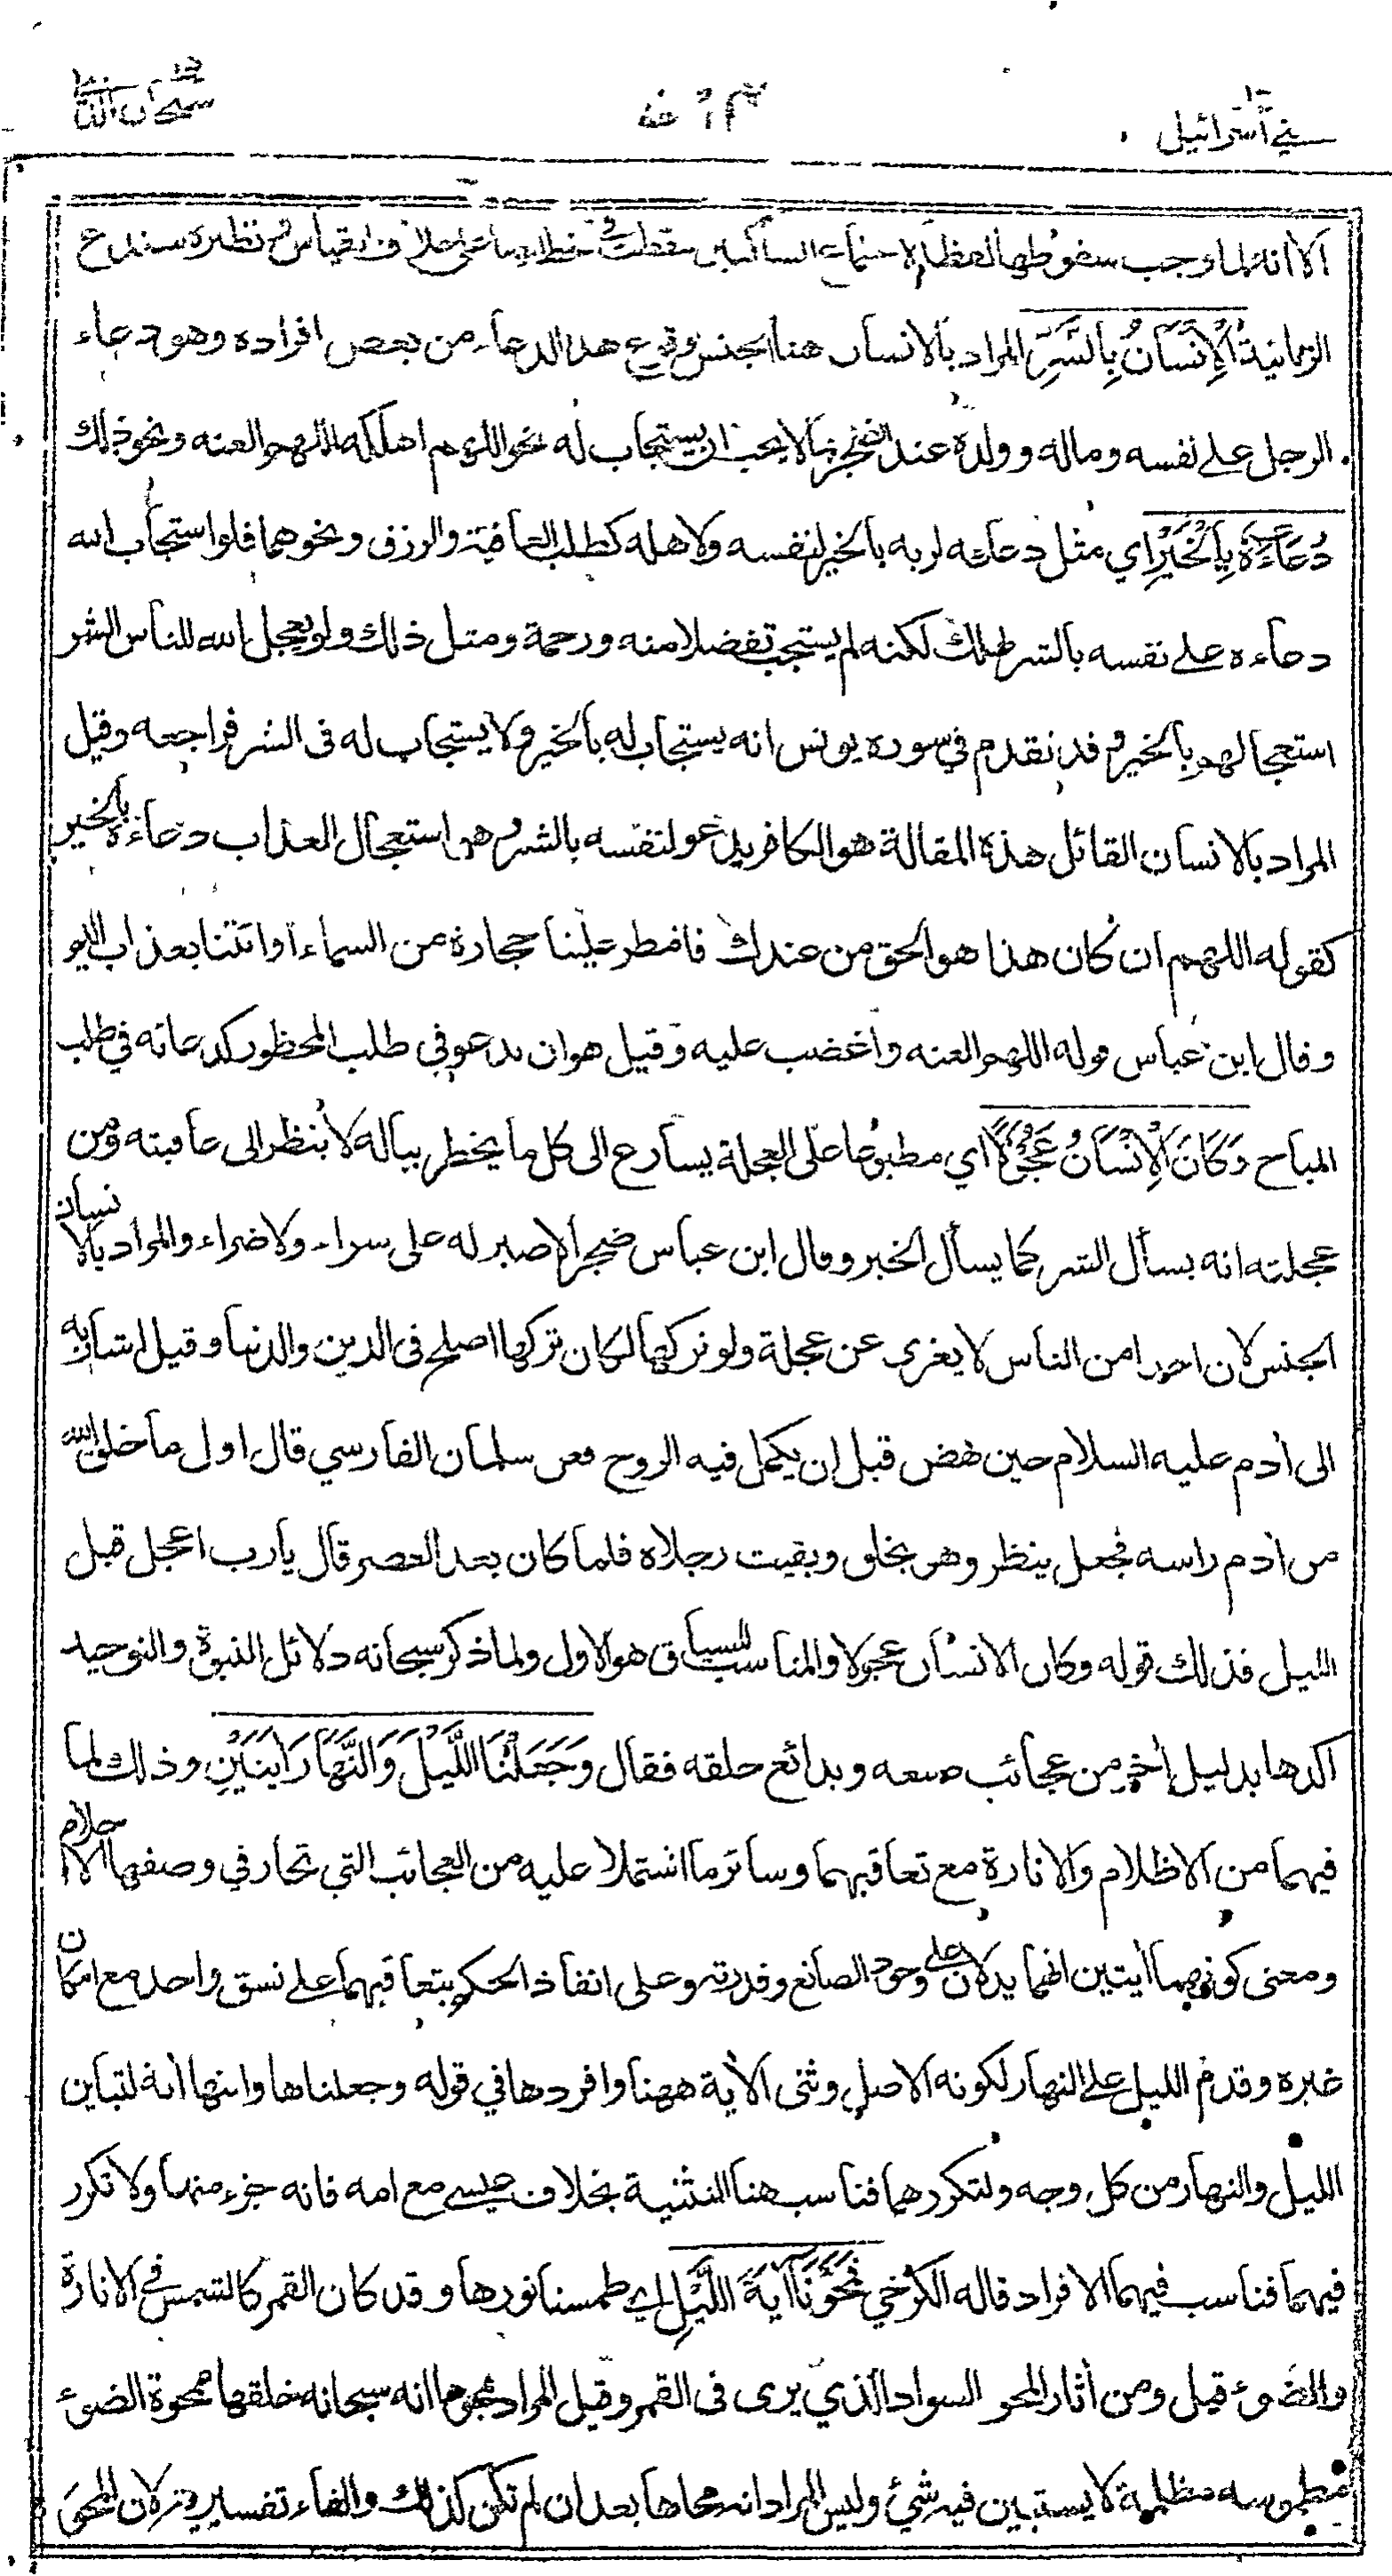 بني اسرائيل
سبحان الذي
الا انه لما وجب سقوطها لفظا لاجتماع الساكنين سقطت في الخط ايضا على خلاف القياس ونظيره سندع
الزبانية الْإِنْسَانُ بِالشَّرِّ المراد بالانسان هنا الجنس لوقوع هذا الدعاء من بعض افراده وهو دعاء
الرجل على نفسه وماله وولده عند الضجر بما لا يحب ان يستجاب له نحو اللهم اهلكه اللهم العنه ونحو ذلك
دُعَاءَهُ بِالْخَيْرِ اي مثل دعائه لربه بالخير لنفسه ولاهله كطلب العافية والرزق ونحوهما فلو استجاب الله
دعاءه على نفسه بالشر هلك لكنه لم يستجب تفضلا منه ورحمة ومثل ذلك ولو يعجل الله للناس الشر
استعجالهم بالخير وقد تقدم في سورة يونس انه يستجاب له بالخير ولا يستجاب له في الشر فراجعه وقيل
المراد بالانسان القائل هذه المقالة هو الكافر يدعو لنفسه بالشر وهو استعجال العذاب دعاءه بالخير
كقوله اللهم ان كان هذا هو الحق من عندك فامطر علينا حجارة من السماء او ائتنا بعذاب اليم
وقال ابن عباس قوله اللهم العنه واغضب عليه وقيل هو ان يدعو في طلب المحظور كدعائه في طلب
المباح وَكَانَ الْإِنْسَانُ عَجُوْلًا اي مطبوعا على العجلة يسارع الى كل ما يخطر بباله لا ينظر الى عاقبته ومن
عجلته انه يسأل الشر كما يسأل الخير وقال ابن عباس ضجرا لا صبر له على سراء ولا ضراء والمراد بالانسان
الجنس لان احدا من الناس لا يعرى عن عجلة ولو تركها لكان تركها اصلح في الدين والدنيا وقيل اشار به
الى أدم عليه السلام حين نهض قبل ان يكمل فيه الروح فعن سلمان الفارسي قال اول ما خلق الله
من أدم راسه فجعل ينظر وهو يخلق وبقيت رجلاه فلما كان بعد العصر قال يا رب اعجل قبل
الليل فذلك قوله وكان الانسان عجولا والمناسب للسياق هو الاول ولما ذكر سبحانه دلائل النبوة والتوحيد
اكدها بدليل أخر من عجائب صنعه وبدائع خلقه فقال وَجَعَلْنَا اللَّيْلَ وَالنَّهَارَ اٰيَتَيْنِ وذلك لما
فيهما من الاظلام والانارة مع تعاقبهما وسائر ما اشتملا عليه من العجائب التي تحار في وصفها الاحلام
ومعنى كونهما أيتين انهما يدلان على وجود الصانع وقدرته وعلى انفاذ الحكم بتعاقبهما على نسق واحد مع امكان
غيره وقدم الليل على النهار لكونه الاصل وثنى الأية ههنا وافردها في قوله وجعلناها وابنها أية لتباين
الليل والنهار من كل وجه ولتكررهما فناسبهنا التثنية بخلاف عيسى مع امه فانه جزء منها ولا تكرر
فيهما فناسب فيهما الافراد قاله الكرخي فَمَحَوْنَا اٰيَةَ اللَّيْلِ اي طمسنا نورها وقد كان القمر كالشمس في الانارة
والضوء قيل ومن أثار المحو السواد الذي يرى في القمر وقيل المراد بمحوها انه سبحانه خلقها ممحوة الضوء
مطموسه مظلمة لا يستبين فيه شئ وليس المراد انه محاها بعد ان لم تكن كذلك والفاء تفسيرية لان المحو